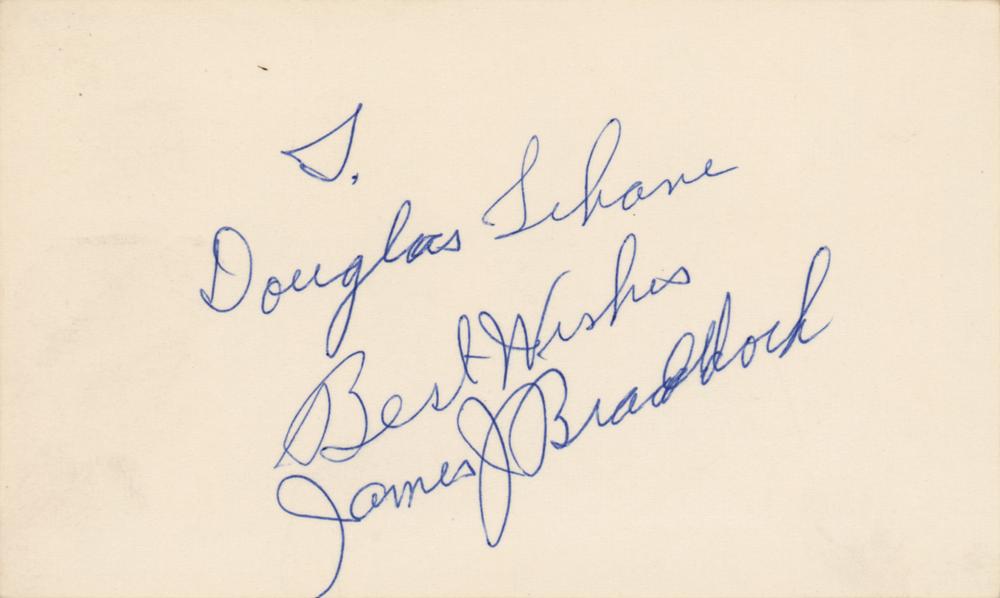 S.
Douglas Schane
Best Wishes
James J Braddock